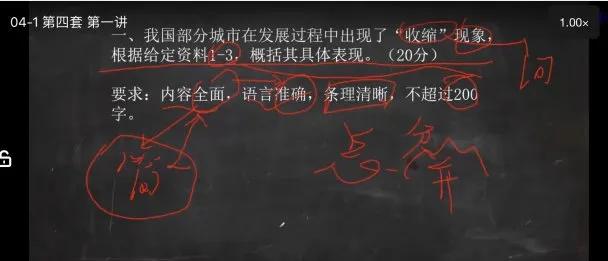 04-1 第四套 第一讲
1.00×
一、我国部分城市在发展过程中出现了“收缩”现象,
根据给定资料1-3,概括其具体表现。(20分)
要求:内容全面,语言准确,条理清晰,不超过200
字。
总